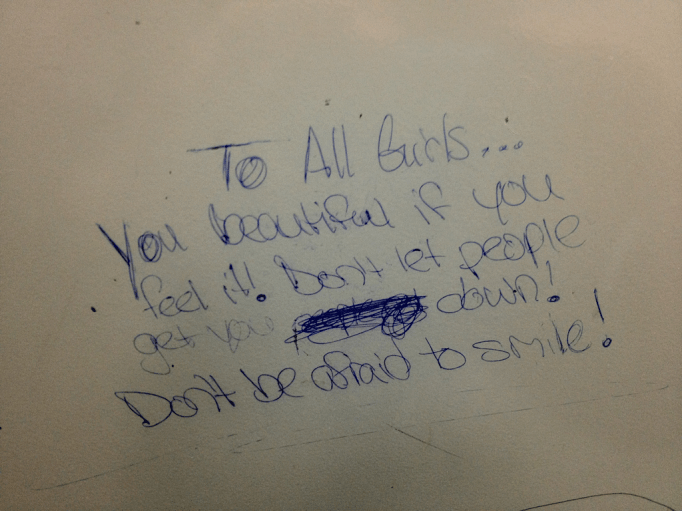 To All Gurls...
You beautiful if you
feel it! Don't let people
get you down!
Don't be afraid to smile!